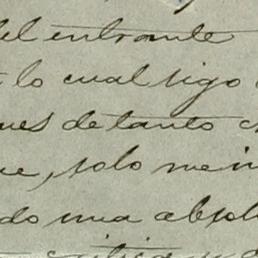 del entrante
lo cual sigo
ues de tanto
ue, solo me in
do una absol
critica